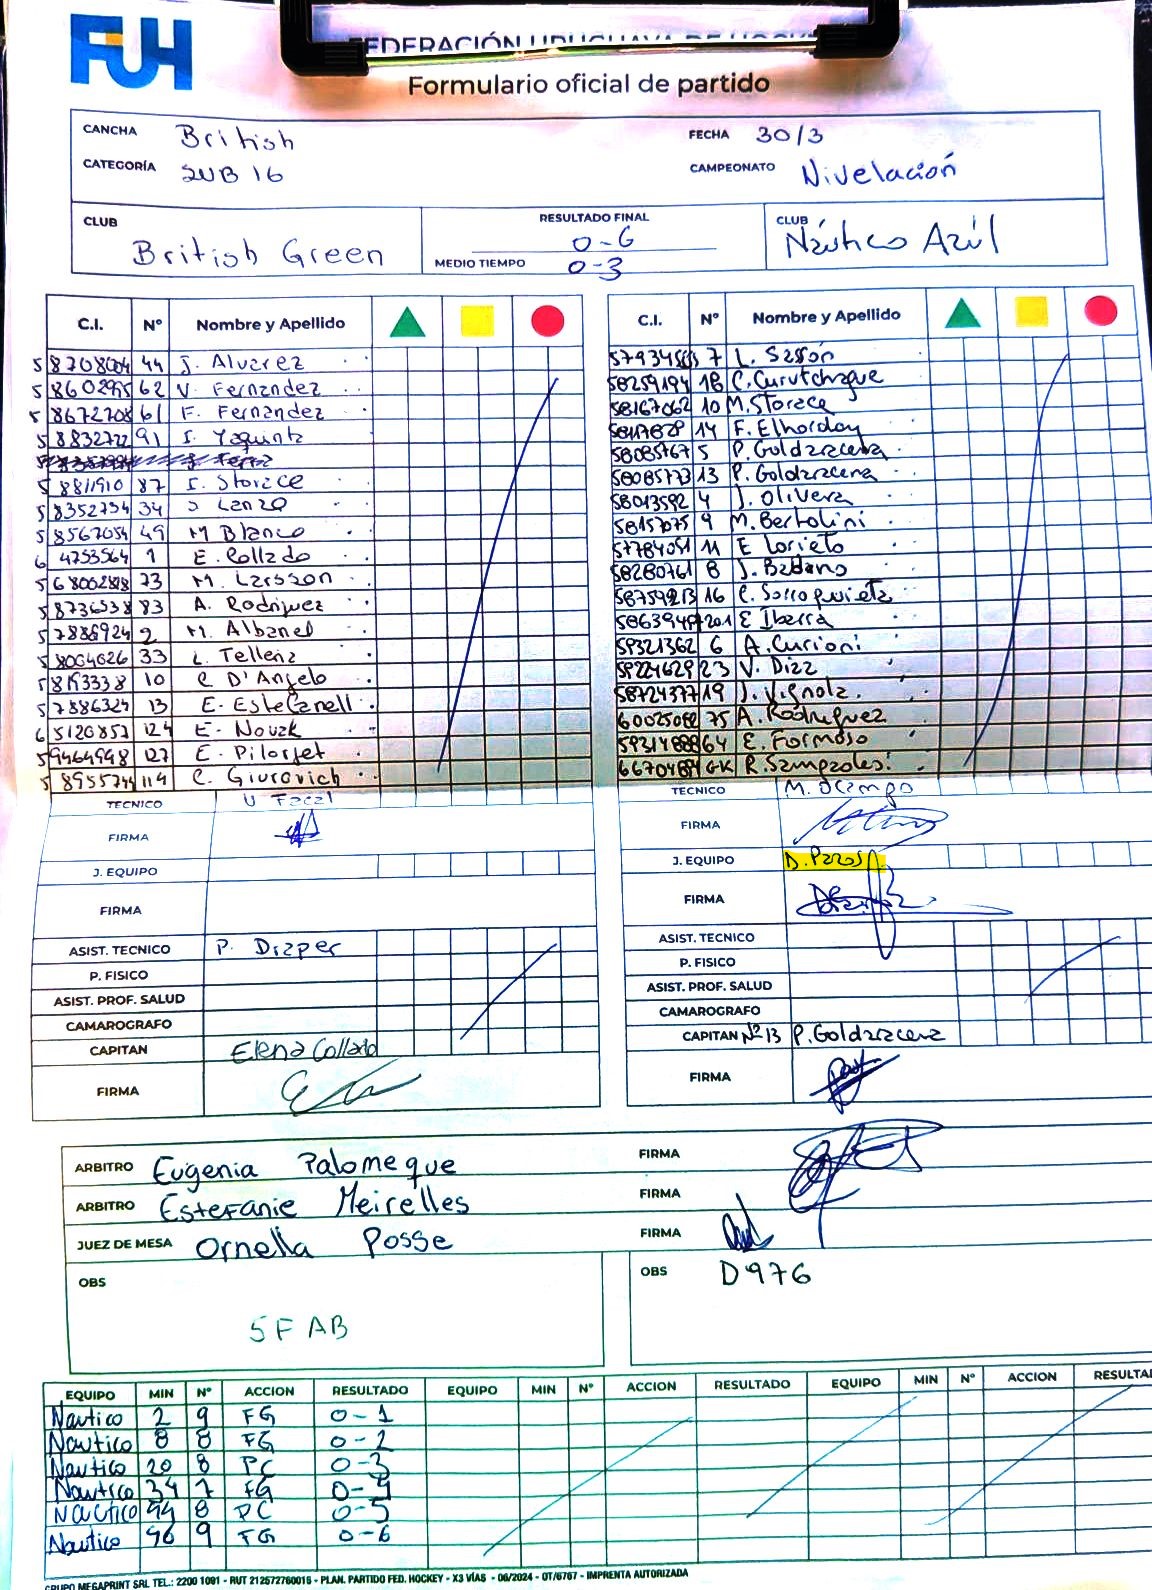 FUH
FEDERACIÓN URUGUAYA DE HOCKEY
Formulario oficial de partido
CANCHA British FECHA 30/3
CATEGORÍA SUB 16 CAMPEONATO Nivelación
CLUB British Green
RESULTADO FINAL 0-6
MEDIO TIEMPO 0-3
CLUB Náutico Azúl
C.I. Nº Nombre y Apellido
44 J. Alvarez
5 8602995 62 V. Fernandez
5 8672708 61 F. Fernández
5 8832722 91 I. Yaquinta
5 8811910 87 I. Storace
5 8352734 34 J Lanza
5 8567054 49 M Blanco
6 4753564 1 E. Collado
73 M. Larsson
5 8736538 83 A. Rodriguez
5 7886924 2 M. Albanel
5 8064626 33 L. Tellenz
10 C D'Angelo
5 7886324 13 E. Estefanell
6 5120857 124 E. Novak
5 9464948 127 E. Pilorjet
5 8955744 114 C. Giurovich
TECNICO U Facal
FIRMA
J. EQUIPO
FIRMA
ASIST. TECNICO P. Draper
P. FISICO
ASIST. PROF. SALUD
CAMAROGRAFO
CAPITAN Elena Collado
FIRMA
C.I. Nº Nombre y Apellido
7 L. Sassón
58259194 18 C. Curutchague
58167062 10 M. Storace
14 F. Elhorday
58085767 5 P. Goldaracena
58085773 13 P. Goldaracena
58013592 4 J. Olivera
58157075 9 M. Bertolini
57784051 11 E Lorieto
58280761 8 J. Badano
58759213 16 C. Sorroquieta
201 E Ibarra
59321362 6 A. Curioni
59224629 23 V. Diaz
58724377 19 J. Vignola.
75 A. Rodriguez
64 E. Formoso
GK R. Sampaolesi
TECNICO M. Ocampo
FIRMA
J. EQUIPO D. Pazos
FIRMA
ASIST. TECNICO
P. FISICO
ASIST. PROF. SALUD
CAMAROGRAFO
CAPITAN Nº 13 P. Goldaracena
FIRMA
ARBITRO Eugenia Palomeque FIRMA
ARBITRO Estefanie Meirelles FIRMA
JUEZ DE MESA Ornella Posse FIRMA
OBS
5F AB
OBS D976
EQUIPO MIN Nº ACCION RESULTADO EQUIPO MIN Nº ACCION RESULTADO EQUIPO MIN Nº ACCION RESULTA
Nautico 2 9 FG 0-1
Nautico 8 8 FG 0-2
Nautico 20 8 PC 0-3
Nautico 34 7 FG 0-4
Nautico 44 8 PC 0-5
Nautico 46 9 FG 0-6
GRUPO MEGAPRINT SRL TEL.: 2200 1091 - RUT 212572760015 - PLAN. PARTIDO FED. HOCKEY - X3 VÍAS - 06/2024 - OT/6767 - IMPRENTA AUTORIZADA